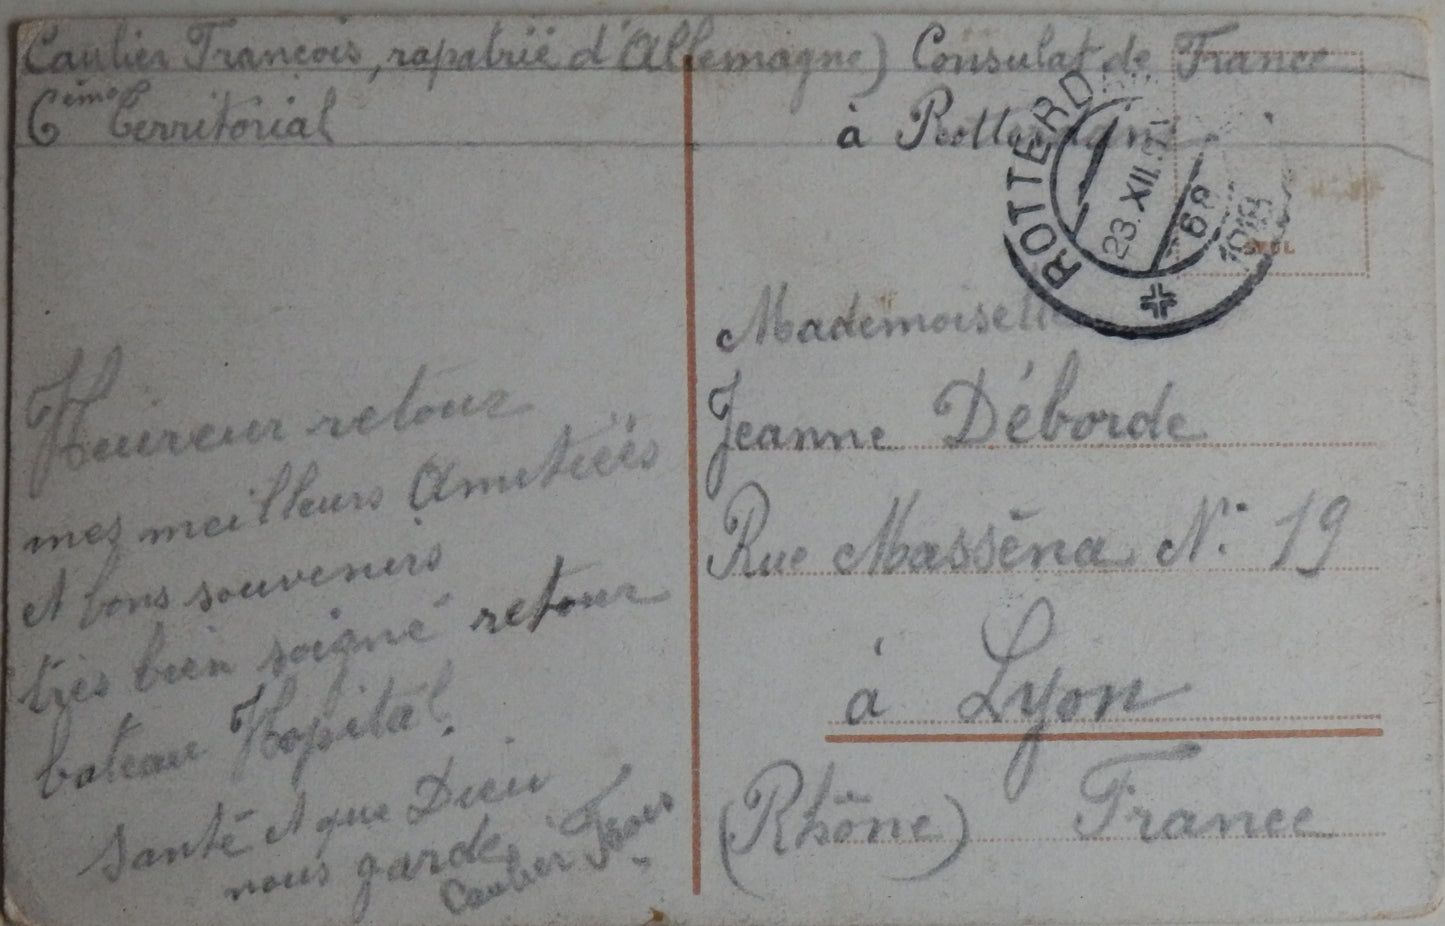 Caulier François, rapatrié d'Allemagne) Consulat de France
6ème territorial
à Rotterdam
ROTTERD
23.XII.
6 8
1918
Mademoiselle
Jeanne Déborde
Rue Masséna N° 19
à Lyon
(Rhône) France
Heureux retour
mes meilleurs Amitiées
et bons souvenirs
très bien soigné retour
bateau Hopital.
Santé et que Dieu
nous garde,
Caulier Frois